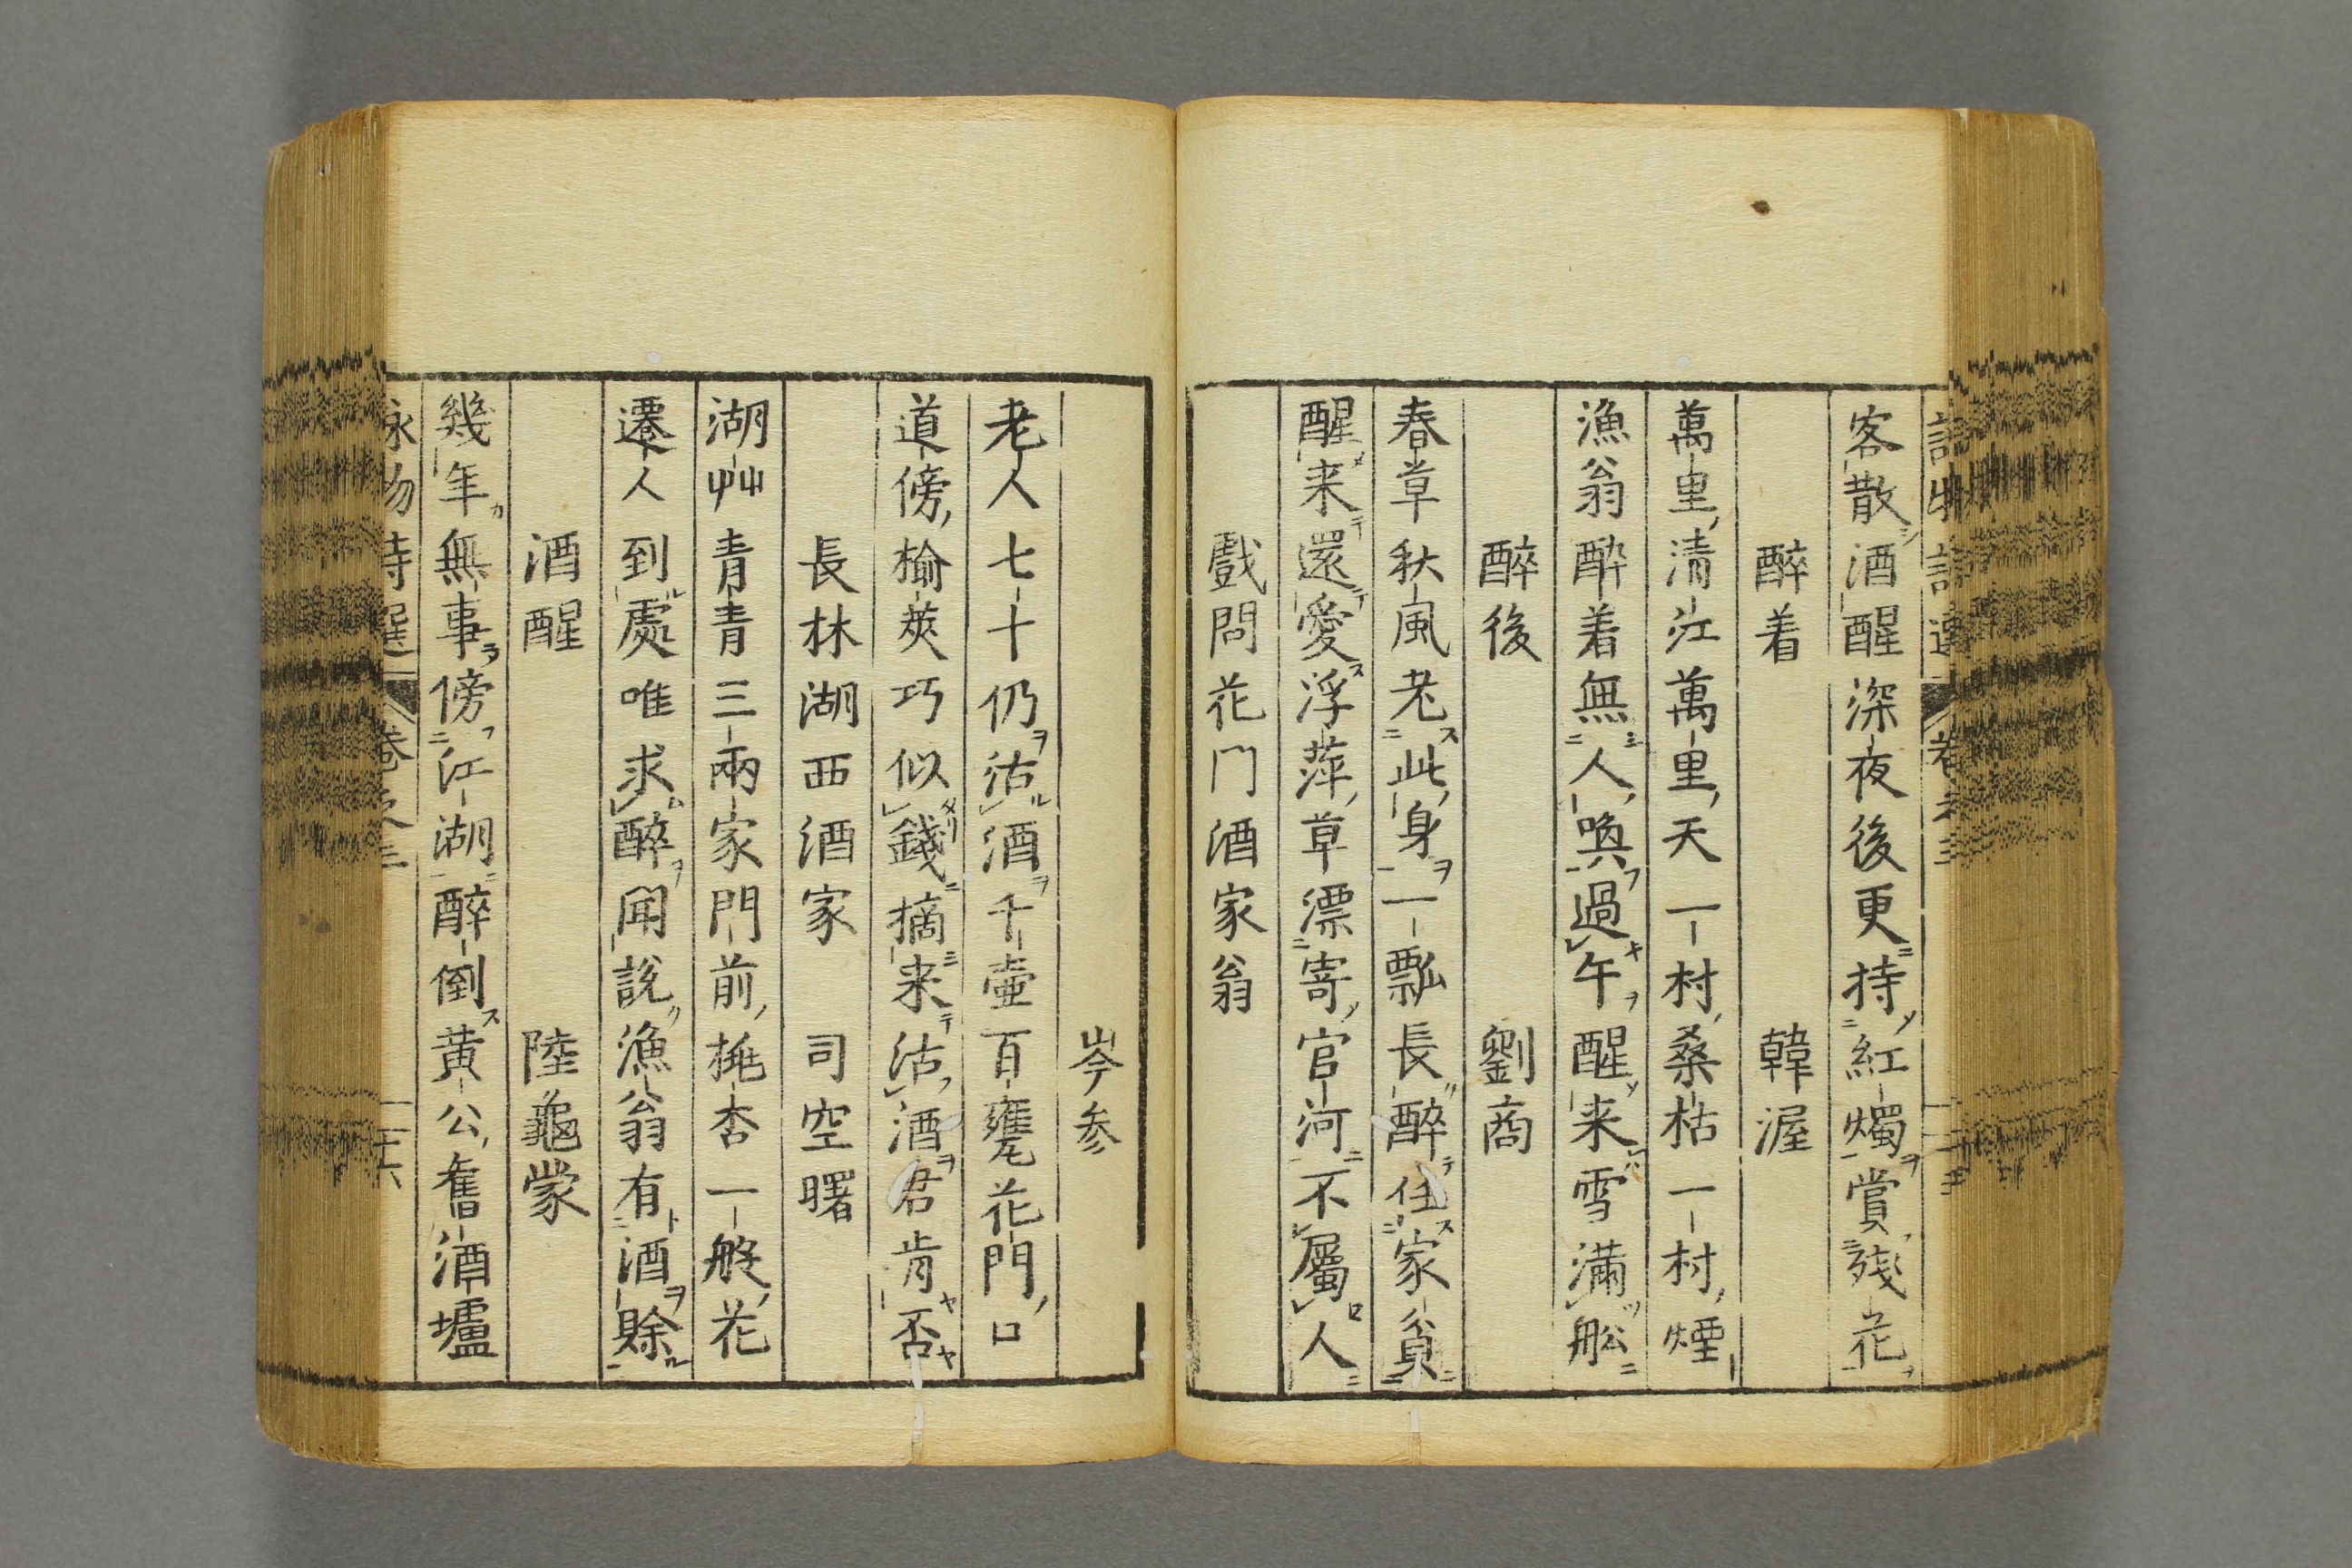 客散酒醒深夜後更持紅燭賞殘花
醉着 韓渥
萬里清江萬里天一村桑枯一村煙
漁翁醉着無人喚過午醒来雪満舩
醉後 劉商
春草秋風老此身一瓢長醉任家貧
醒来還愛浮萍草漂寄官河不屬人
戲問花門酒家翁
岑参
老人七十仍沽酒千壷百甕花門口
道傍榆莢巧似錢摘来沽酒君肯否
長林湖西酒家 司空曙
湖艸青青三兩家門前桃杏一般花
遷人到處唯求醉聞說漁翁有酒賖
酒醒 陸龜蒙
幾年無事傍江湖醉倒黄公舊酒壚
詠物詩選 卷之三 二十六